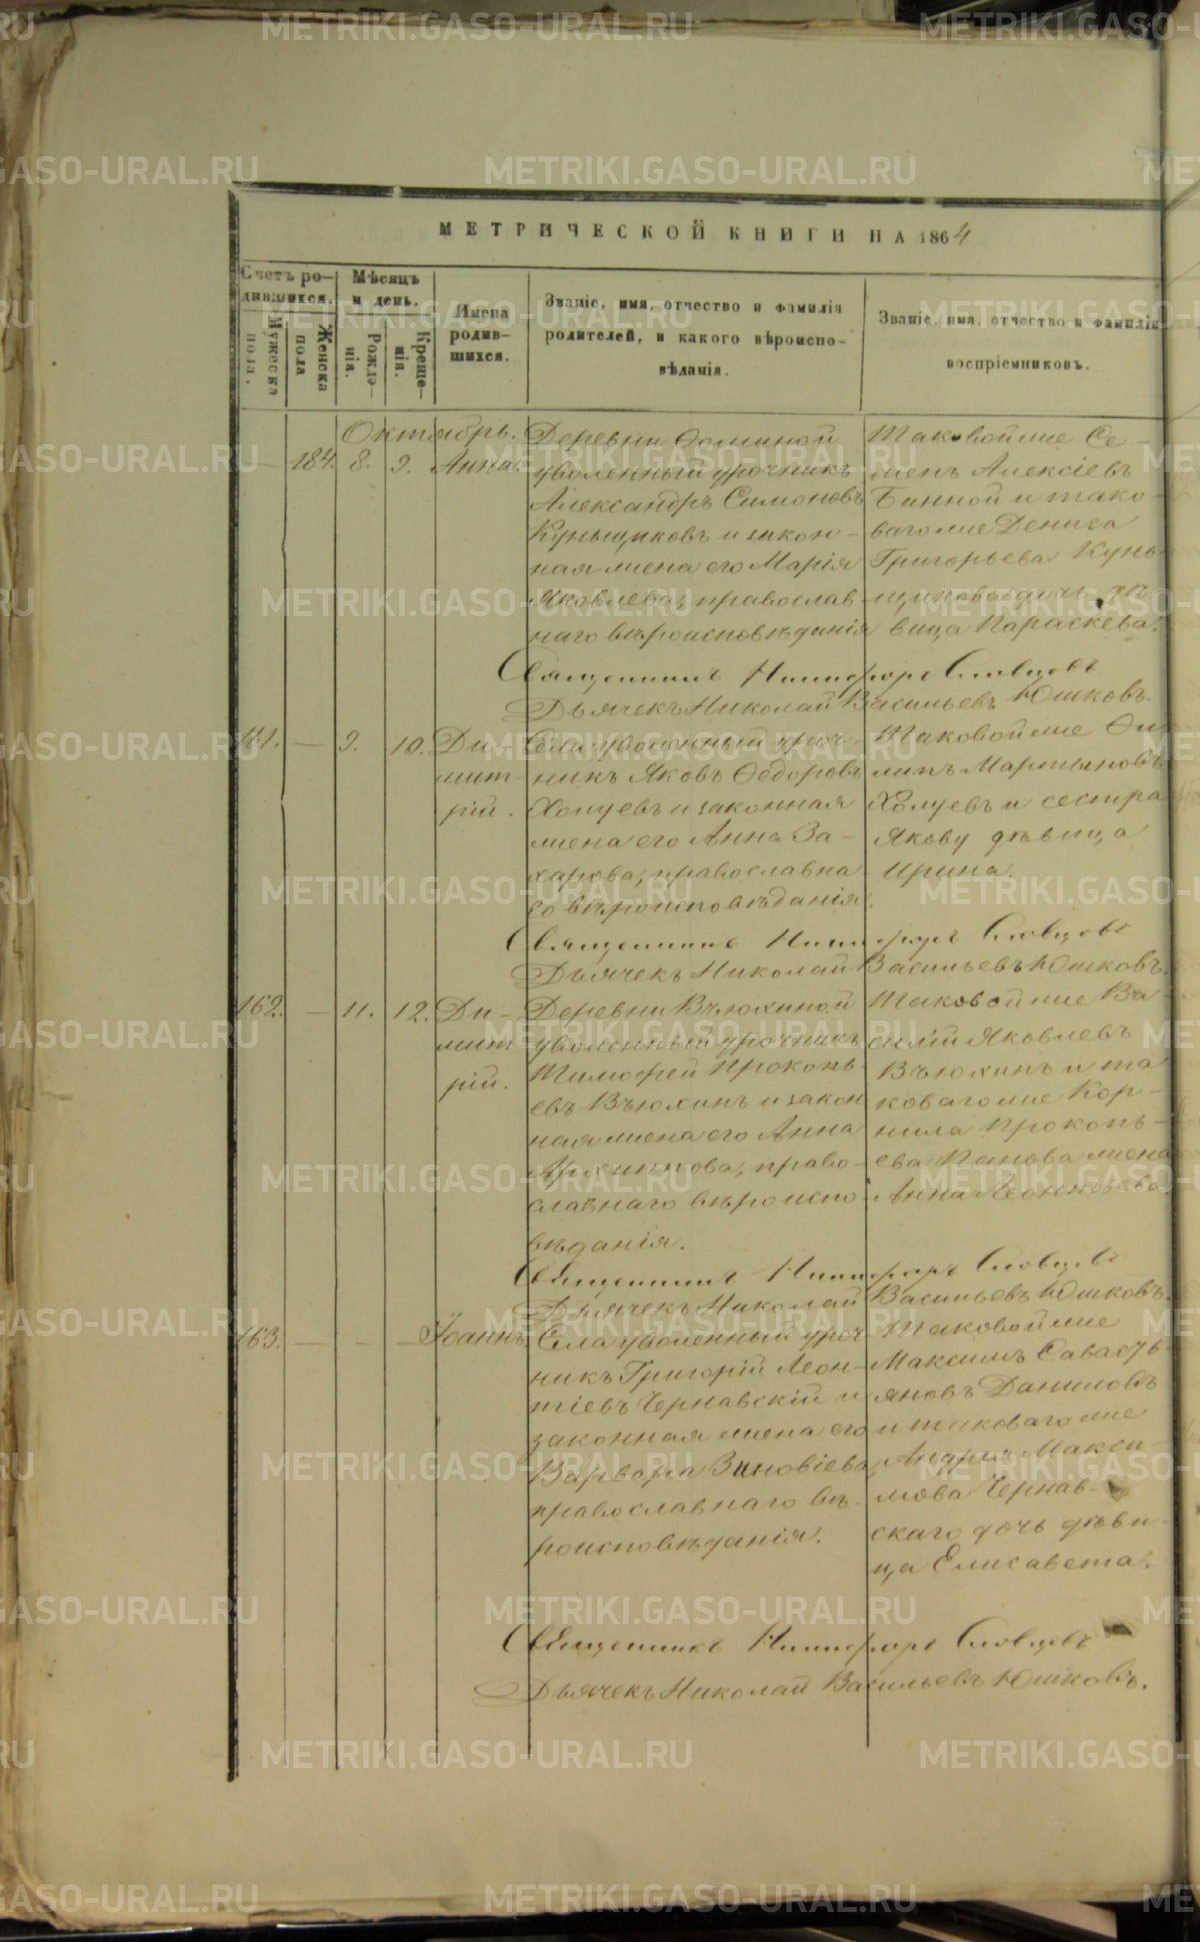 МЕТРИЧЕСКОЙ КНИГИ НА 1864
Счетъ ро-
дившихся.
Мѣсяцъ
и день.
Мужеска
пола.
Женска
пола
Рожде-
нія.
Креще-
нія.
Имена
родив-
шихся.
Званіе, имя, отчество и фамилія
родителей, и какого вѣроиспо-
вѣданія.
Званіе, имя, отчество и фамилія
воспріемниковъ.
Октябрь.
— 184. 8. 9. Анна.
Деревни Ѳоминой
уволенный урочникъ
Александръ Симоновъ
Куньщиковъ и закон-
ная жена его Марія
Яковлева, православ-
наго вѣроисповѣданія
Таковой же Се-
менъ Алексіевъ
Банной и тако-
ваго же Дениса
Григорьева Кунь-
щикова дочь дѣ-
вица Параскева.
Священникъ Никифоръ Словцовъ
Дьячекъ Николай Васильевъ Юшковъ.
161. — 9. 10. Ди-
мит-
рій.
Села уволенный уроч-
никъ Яковъ Ѳедоровъ
Холуевъ и законная
жена его Анна За-
харова, православна-
го вѣроисповѣданія.
Таковой же Фи-
липъ Мартыновъ
Холуевъ и сестра
Якову дѣвица
Ирина.
Священникъ Никифоръ Словцовъ
Дьячекъ Николай Васильевъ Юшковъ.
162. — 11. 12. Ди-
мит-
рій.
Деревни Вьюхиной
уволенный урочникъ
Тимофей Прокопь-
евъ Вьюхинъ и закон-
ная жена его Анна
Архиппова, право-
славнаго вѣроиспо-
вѣданія.
Таковой же Ва-
силій Яковлевъ
Вьюхинъ и та-
коваго же Кор-
нила Прокопь-
ева Панова жена
Анна Леонтьева.
Священникъ Никифоръ Словцовъ
Дьячекъ Николай Васильевъ Юшковъ.
163. — — — Іоаннъ.
Села уволенный уроч-
никъ Григорій Леон-
тіевъ Чернавскій и
законная жена его
Варвара Зиновіева,
православнаго вѣ-
роисповѣданія.
Таковой же
Максимъ Савастья-
новъ Даниловъ
и таковаго же
Андрея Макси-
мова Чернав-
скаго дочь дѣви-
ца Елисавета.
Священникъ Никифоръ Словцовъ
Дьячекъ Николай Васильевъ Юшковъ.
METRIKI.GASO-URAL.RU